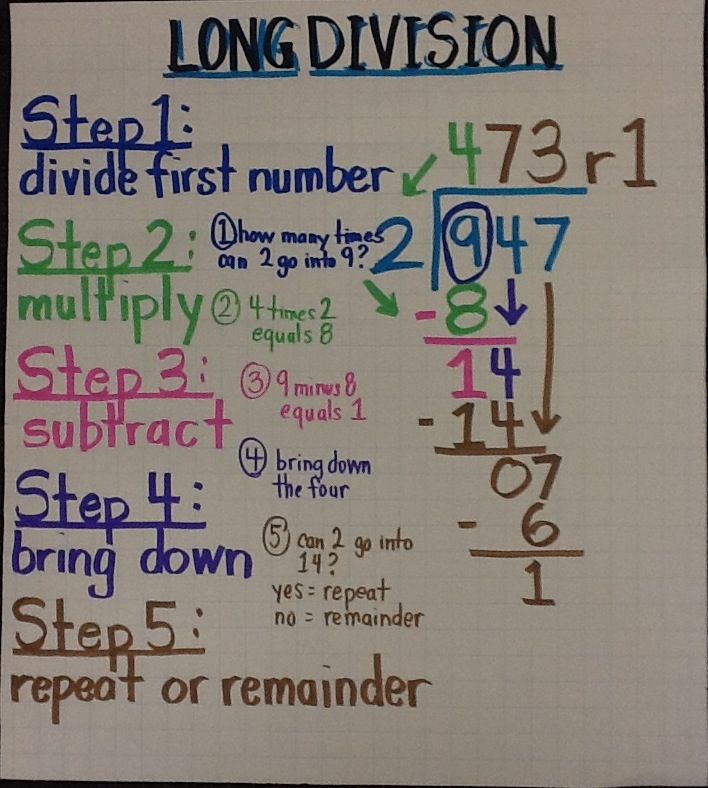 LONG DIVISION
Step 1:
divide first number
Step 2:
multiply
Step 3:
subtract
Step 4:
bring down
Step 5:
repeat or remainder
① how many times
can 2 go into 9?
② 4 times 2
equals 8
③ 9 minus 8
equals 1
④ bring down
the four
⑤ can 2 go into
14?
yes = repeat
no = remainder
473 r 1
2 947
- 8
14
- 14
07
- 6
1